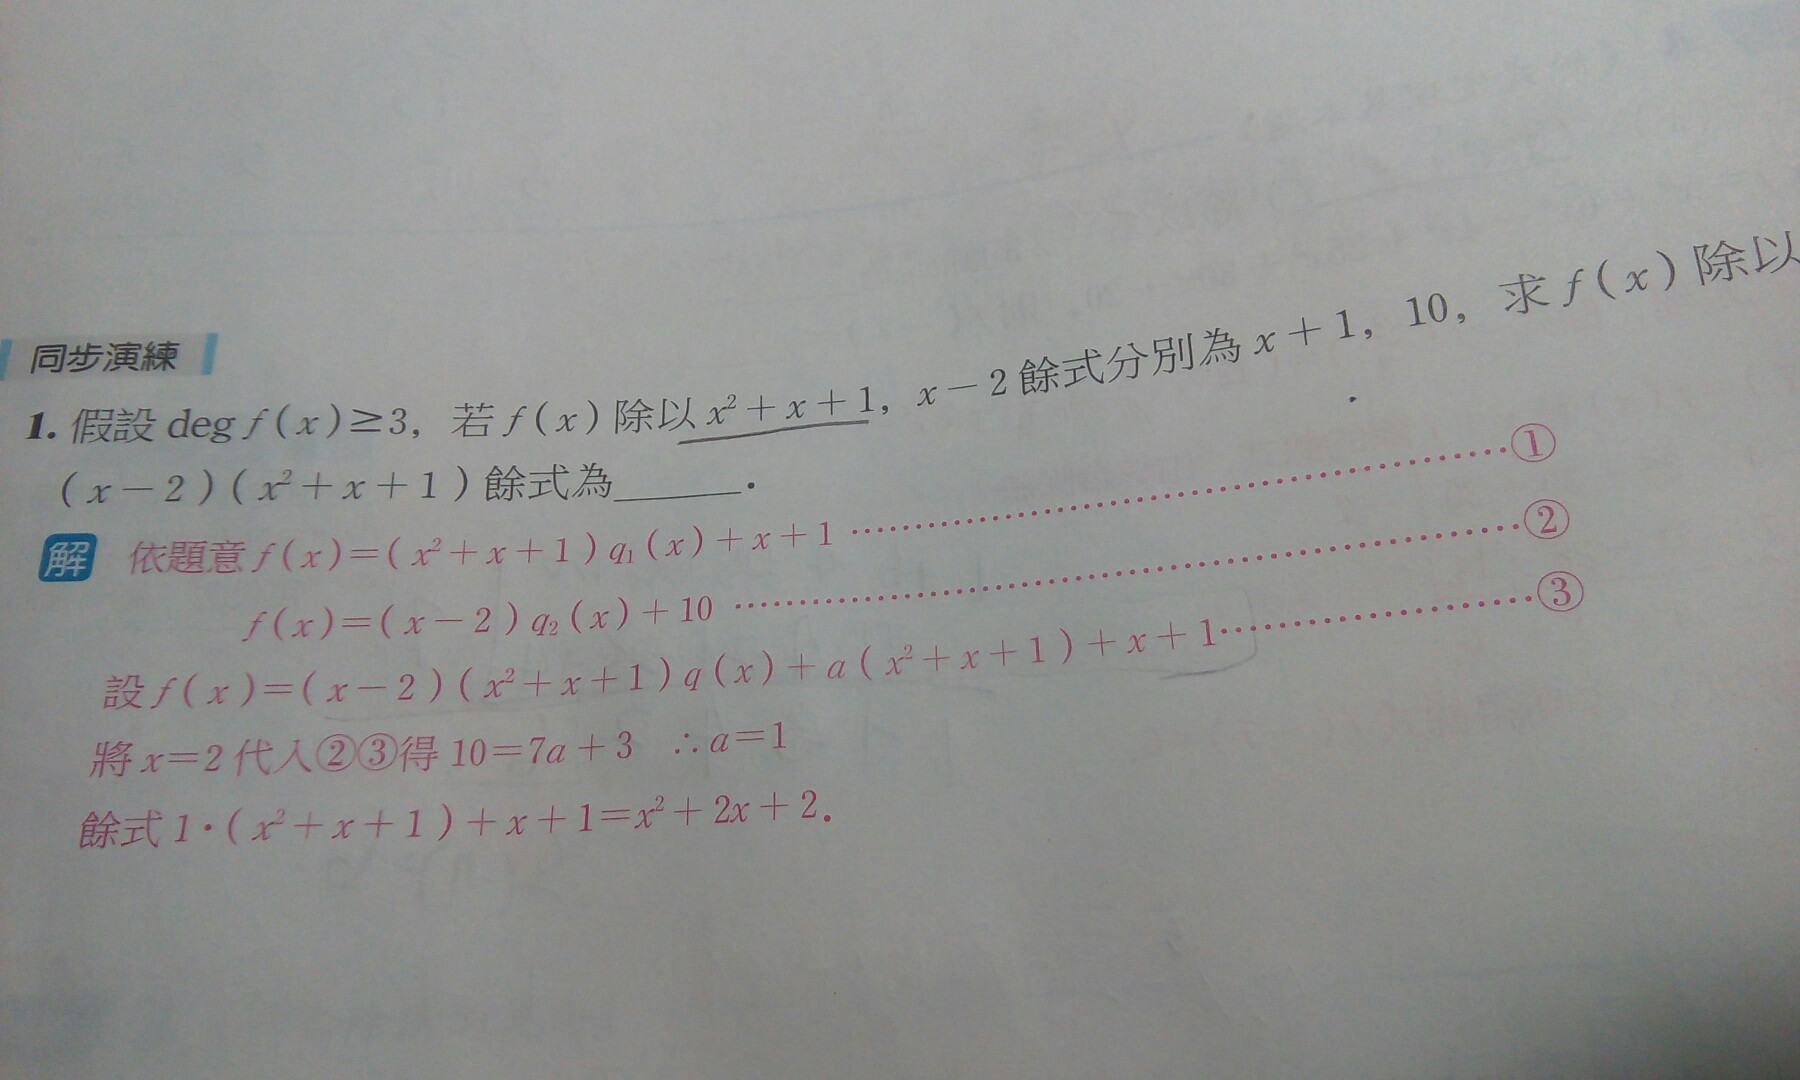 同步演練
1. 假設 deg f(x)≥3，若 f(x) 除以 x²+x+1，x-2 餘式分別為 x+1，10，求 f(x) 除以
(x-2)(x²+x+1) 餘式為______．
解 依題意 f(x)=(x²+x+1)q₁(x)+x+1 ……………………①
f(x)=(x-2)q₂(x)+10 ……………………②
設 f(x)=(x-2)(x²+x+1)q(x)+a(x²+x+1)+x+1……………③
將 x=2 代入②③得 10=7a+3 ∴a=1
餘式 1·(x²+x+1)+x+1=x²+2x+2．